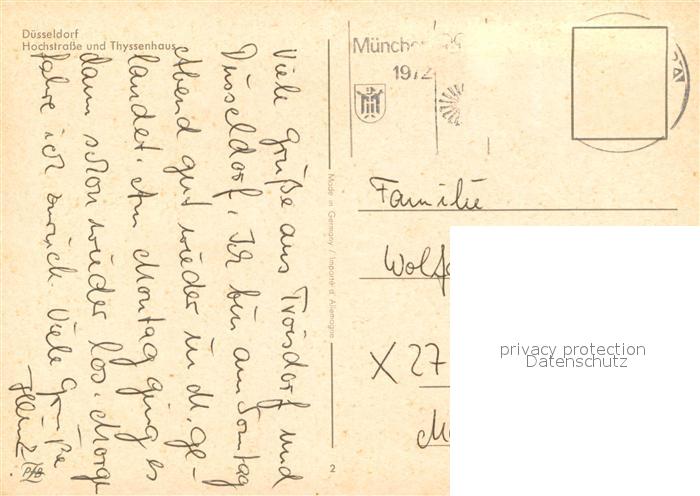 Düsseldorf
Hochstraße und Thyssenhaus
Viele Grüße aus Troisdorf und
Düsseldorf. Ich bin am Sonntag
Abend gut wieder in M. ge-
landet. Am Montag ging es
dann schon wieder los. Morge
fahre ich zurück. Viele Grüße
Heinz
Made in Germany / Importé d'Allemagne
2
Münche
1972
Familie
Wolfg
X 27
privacy protection
Datenschutz